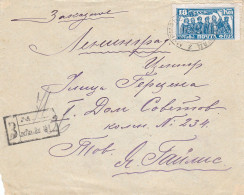 Заказное
18
ПОЧТА
Ленинград
Центр
Улица Герцена
I Дом Советов
комн. № 234.
Тов. Я. Гайлис